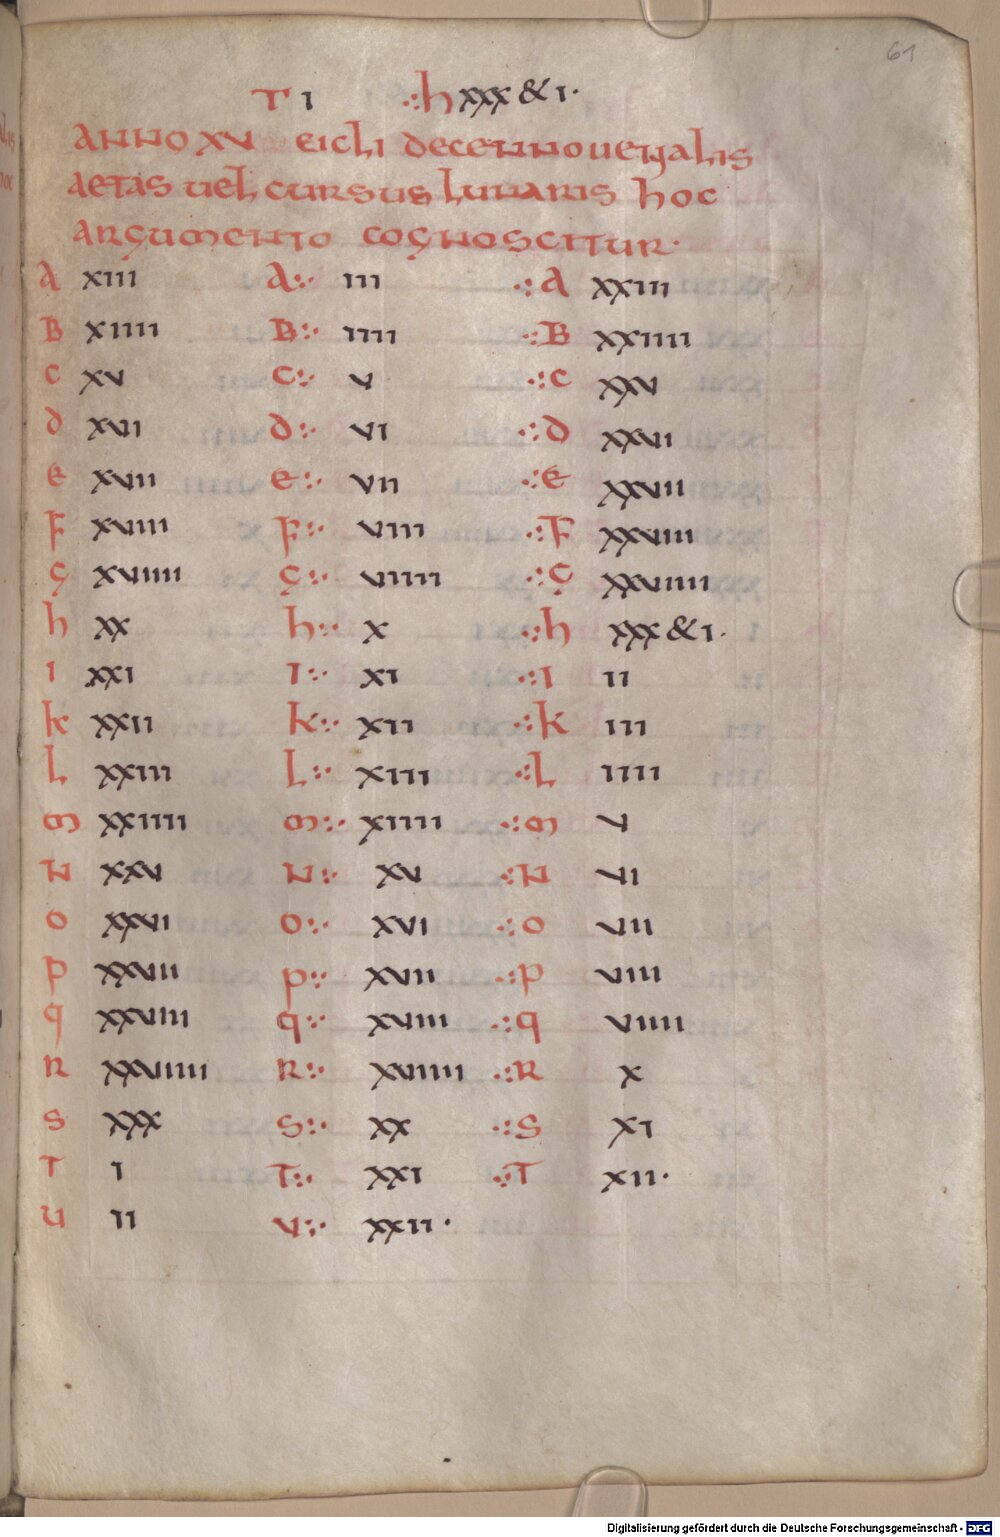 61
T I .:h XXX & I.
ANNO XV CICLI DECENNOVENALIS
AETAS UEL CURSUS LUNARIS HOC
ARGUMENTO COGNOSCITUR.
A XIII A:. III .:A XXIII
B XIIII B:. IIII .:B XXIIII
C XV C:. V .:C XXV
D XVI D:. VI .:D XXVI
E XVII E:. VII .:E XXVII
F XVIII F:. VIII .:F XXVIII
G XVIIII G:. VIIII .:G XXVIIII
h XX h:. X .:h XXX & I.
I XXI I:. XI .:I II
K XXII K:. XII .:K III
L XXIII L:. XIII .:L IIII
M XXIIII M:. XIIII .:M V
N XXV N:. XV .:N VI
O XXVI O:. XVI .:O VII
P XXVII P:. XVII .:P VIII
q XXVIII q:. XVIII .:q VIIII
R XXVIIII R:. XVIIII .:R X
S XXX S:. XX .:S XI
T I T:. XXI .:T XII.
U II V:. XXII.
Digitalisierung gefördert durch die Deutsche Forschungsgemeinschaft - DFG